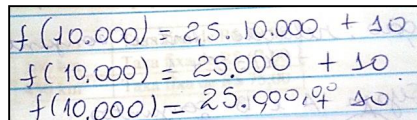 f(10.000) = 2,5. 10.000 + 10
f(10.000) = 25.000 + 10
f(10.000) = 25.900,00 + 10